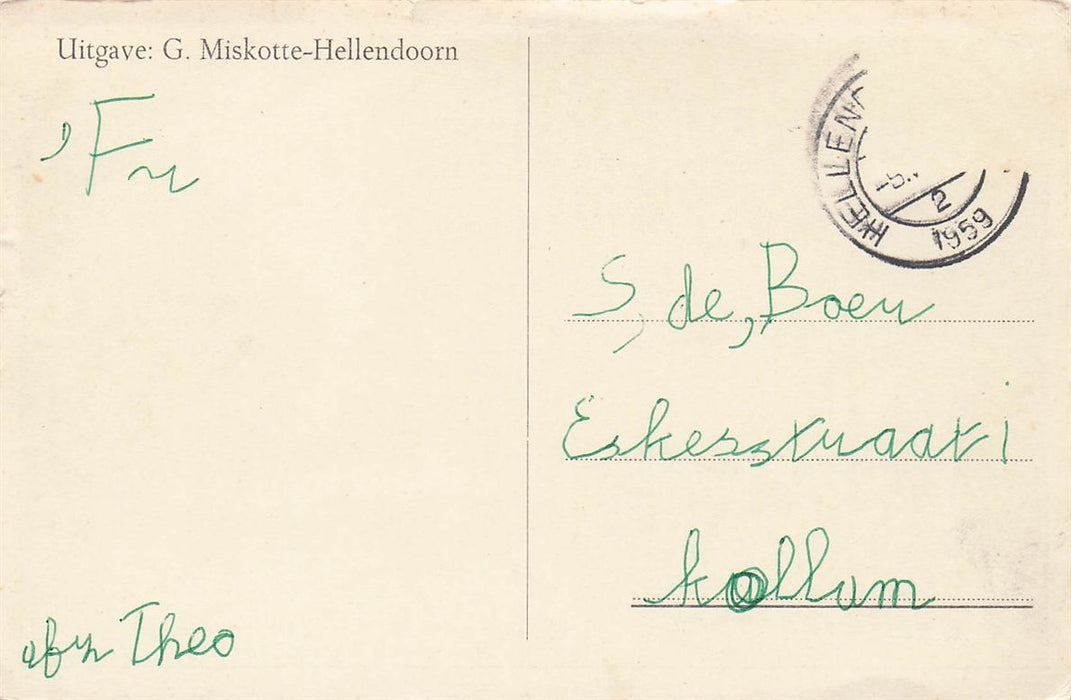 Uitgave: G. Miskotte-Hellendoorn
HELLEND
2
1959
S, de, Boer
Eskesstraat 1
kollum
Theo